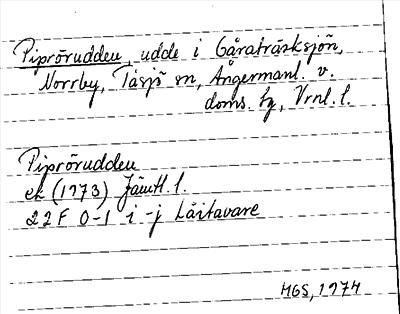 Piprörudden, udde i Gåraträsksjön,
Norrby, Tåsjö sn, Ångermanl. v.
doms. fg, Vrnl. l.
Piprörudden
ek (1973) Jämtl. l.
22F 0-1 i-j Låitavare
MGS, 1974